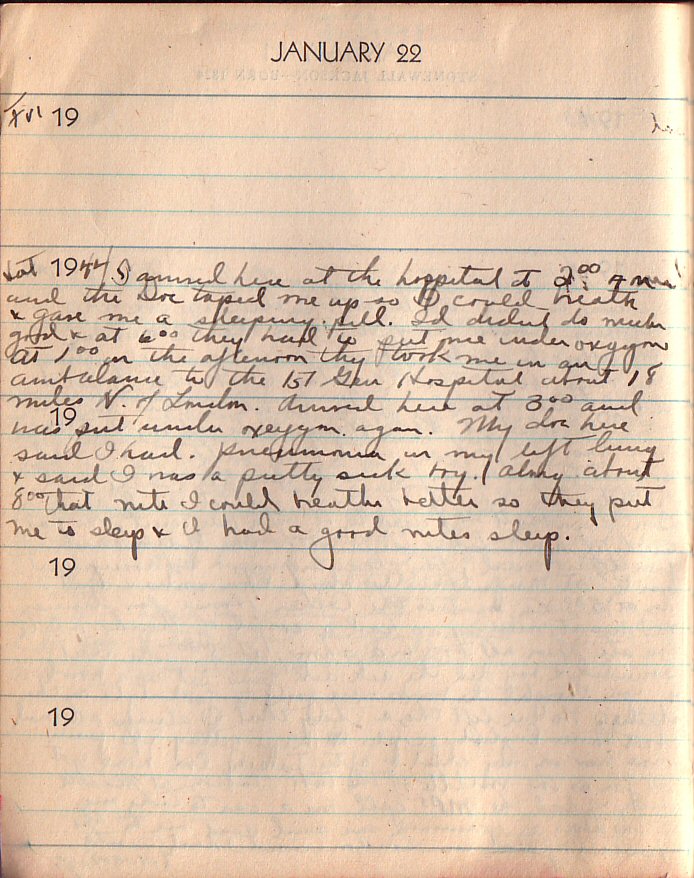 JANUARY 22
XVI 19
Sat 1944 I arrived here at the hospital at 2:00 A.M.
and the Doc taped me up so I could breath
& gave me a sleeping pill. It didnt do much
good & at 6:00 they had to put me under oxygon
at 1:00 in the afternoon they took me in an
ambulance to the 1st Gen Hospital about 18
miles N of London. Arrived here at 3:00 and
19
was put under oxeygon again. My doc here
said I had pneumonia in my left lung
& said I was a pretty sick boy. Along about
8:00 that nite I could breathe better so they put
me to sleep & I had a good nites sleep.
19
19